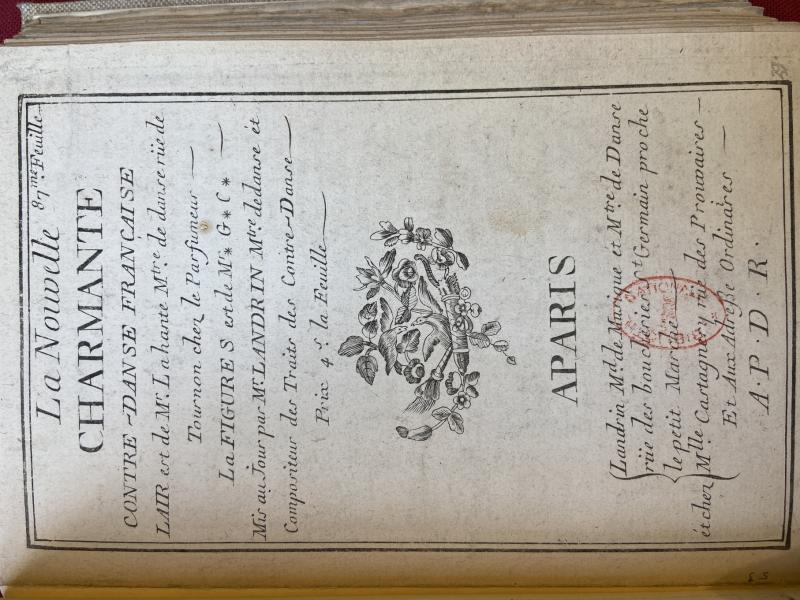 La Nouvelle 87.me Feuille
CHARMANTE
CONTRE-DANSE FRANCAISE
LAIR est de Mr. Lahante Mtre de danse rüe de
Tournon chez le Parfumeur
La FIGURE S est de Mr* G*C*
Mis au Jour par Mr. LANDRIN Mtre de danse ét
Compositeur des Traits des Contre-Danse
Prix 4 s. la Feuille
APARIS
Landrin Md. de Musique et Mtre de Danse
rüe des boucheries St Germain proche
le petit Marché
ét chez Mlle Castagnery rüe des Prouvaires
Et Aux Adresse Ordinaires
A.P.D.R.